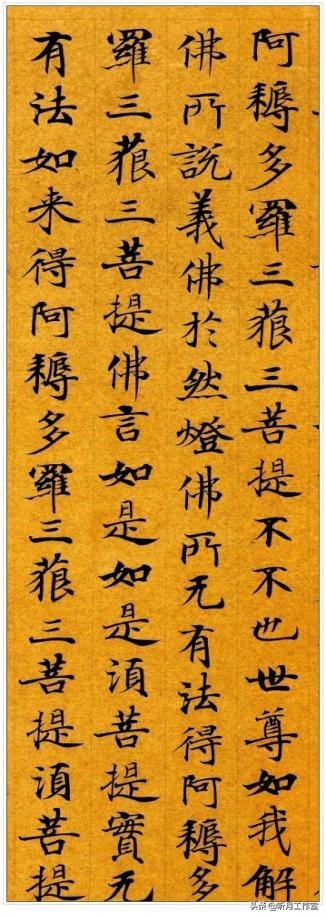 阿耨多羅三藐三菩提不不也世尊如我解
佛所說義佛於然燈佛所无有法得阿耨多
羅三藐三菩提佛言如是如是須菩提實无
有法如来得阿耨多羅三藐三菩提須菩提
头条 @昕月工作室